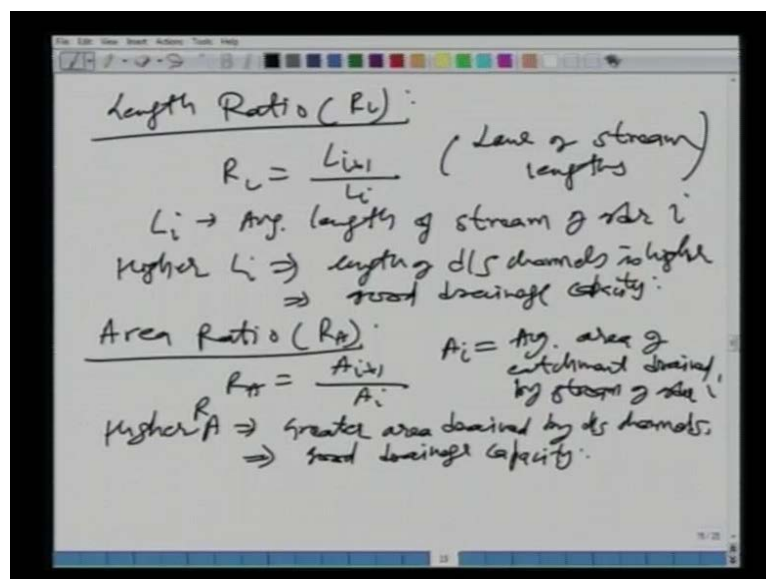 File Edit View Insert Actions Tools Help
Length Ratio (RL):
RL = Li+1 / Li (Law of stream lengths)
Li → Avg. length of stream of order i
Higher Li ⇒ length of d/s channels is higher
⇒ good drainage capacity.
Area Ratio (RA):
RA = Ai+1 / Ai
Ai = Avg. area of
catchment drained
by stream of order i
Higher RA ⇒ Greater area drained by d/s channels.
⇒ good drainage capacity.
19